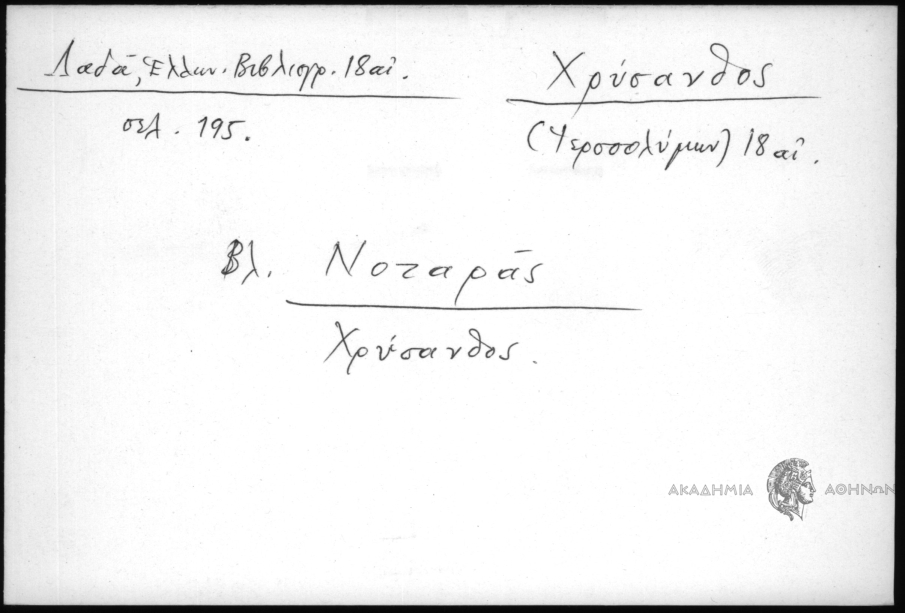 Λαδᾶ, Ἑλλην. Βιβλιογρ. 18 αἰ.
σελ. 195.
Χρύσανθος
(Ἱεροσολύμων) 18 αἰ.
Βλ. Νοταρᾶς
Χρύσανθος.
ΑΚΑΔΗΜΙΑ ΑΘΗΝΩΝ